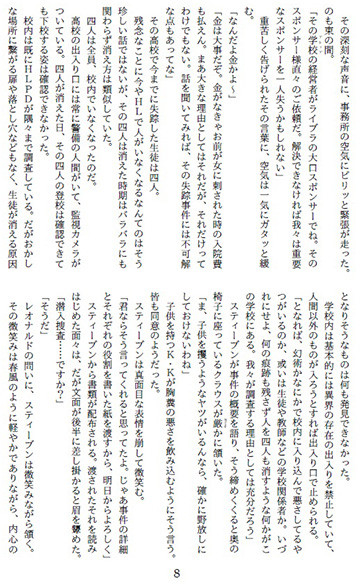 その深刻な声音に、事務所の空気にピリッと緊張が走った
のも束の間。
「その学校の経営者がライブラの大口スポンサーでね。その
スポンサー様直々のご依頼だ。解決できなければ我々は重要
なスポンサーを一人失うかもしれない」
重苦しく告げられたその言葉に、空気は一気にガタッと緩
む。
「なんだよ金かよ～」
「金は大事だぞ、金がなきゃお前が女に刺された時の入院費
も払えん。まあ大きな理由としてはそれだが、それだけって
わけでもない。話を聞いてみれば、その失踪事件には不可解
な点もあってな」
その高校で今までに失踪した生徒は四人。
残念なことに今やHLで人がいなくなるなんてのはそう
珍しい話ではないが、その四人は消えた時期はバラバラにも
関わらず消え方は類似していた。
四人は全員、校内でいなくなったのだ。
高校の出入り口には常に警備の人間がいて、監視カメラが
ついている。四人が消えた日、その四人の登校は確認できて
も下校する姿は確認できなかった。
校内は既にHLPDが隅々まで調査している。だがおかし
な場所に繋がる扉や落とし穴などもなく、生徒が消える原因
となりそうなものは何も発見できなかった。
学校内は基本的には異界の存在の出入りを禁止していて、
人間以外のものが入ろうとすれば出入り口で止められる。
「となれば、幻術かなにかで校内に入り込んで悪さしてるや
つがいるのか、或いは生徒や教師などの学校関係者か。いづ
れにせよ、何の痕跡も残さず人を四人も消すような何かがこ
の学校にある。我々が調査する理由としては充分だろう」
スティーブンが事件の概要を語り、そう締めくくると奥の
椅子に座っているクラウスが厳かに頷いた。
「ま、子供を攫うようなヤツがいるんなら、確かに野放しに
しておけないわね」
子供を持つK・Kが胸糞の悪さを飲み込むようにそう言う。
皆も同意のようだった。
スティーブンは真面目な表情を崩して微笑む。
「君ならそう言ってくれると思ってたよ。じゃあ事件の詳細
とそれぞれの役割を書いた紙を渡すから、明日からよろしく」
スティーブンから書類が配布される。渡されたそれを読み
はじめた面々は、だが文面が後半に差し掛かると眉を顰めた。
「潜入捜査…ですか？」
「そうだ」
レオナルドの問いに、スティーブンは微笑みながら頷く。
その微笑みは春風のように軽やかでありながら、内心の
8